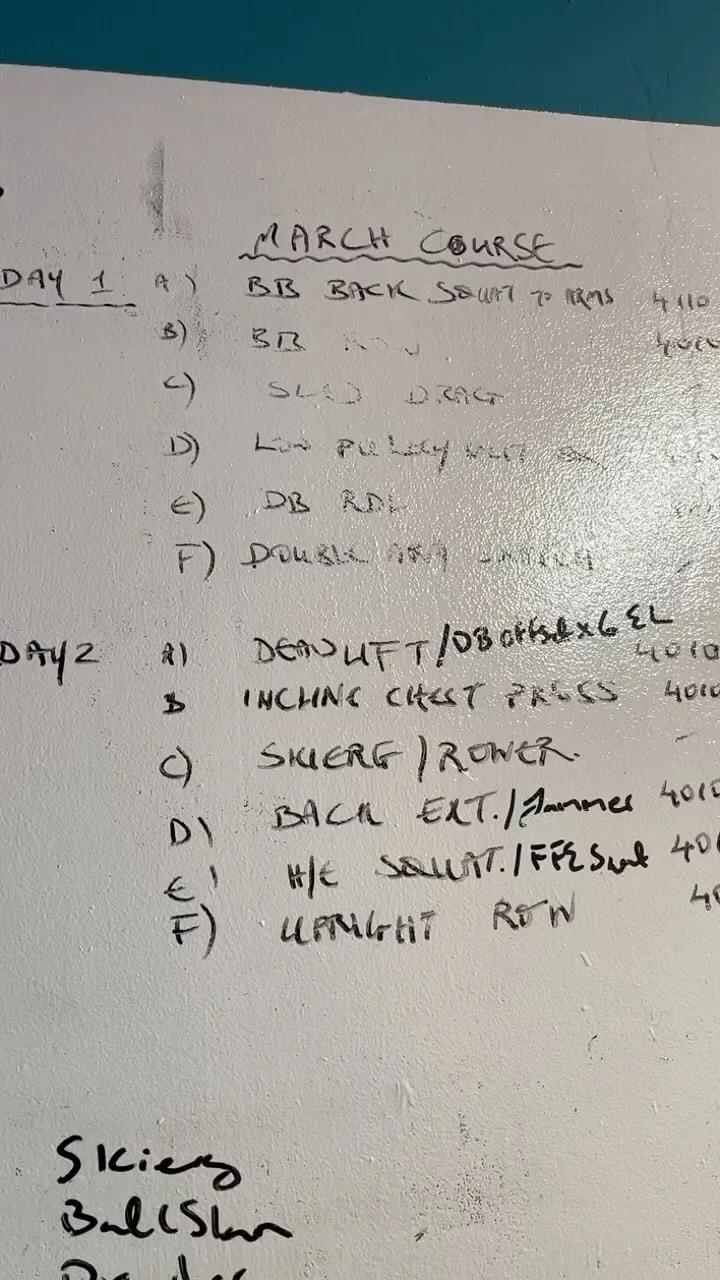 MARCH COURSE
DAY 1 A) BB BACK SQUAT TO ARMS 4110
B) BB ROW
C) SLED DRAG
D) LOW PULLEY
E) DB RDL
F) DOUBLE ARM
DAY 2 A) DEADLIFT/DB offset x 6 EL 4010
B INCLINE CHEST PRESS 4010
C) SKIERG/ROWER
D) BACK EXT./Jammer 4010
E) H/E SQUAT./FFE 40
F) UPRIGHT ROW 40
Skierg
Ball Slam